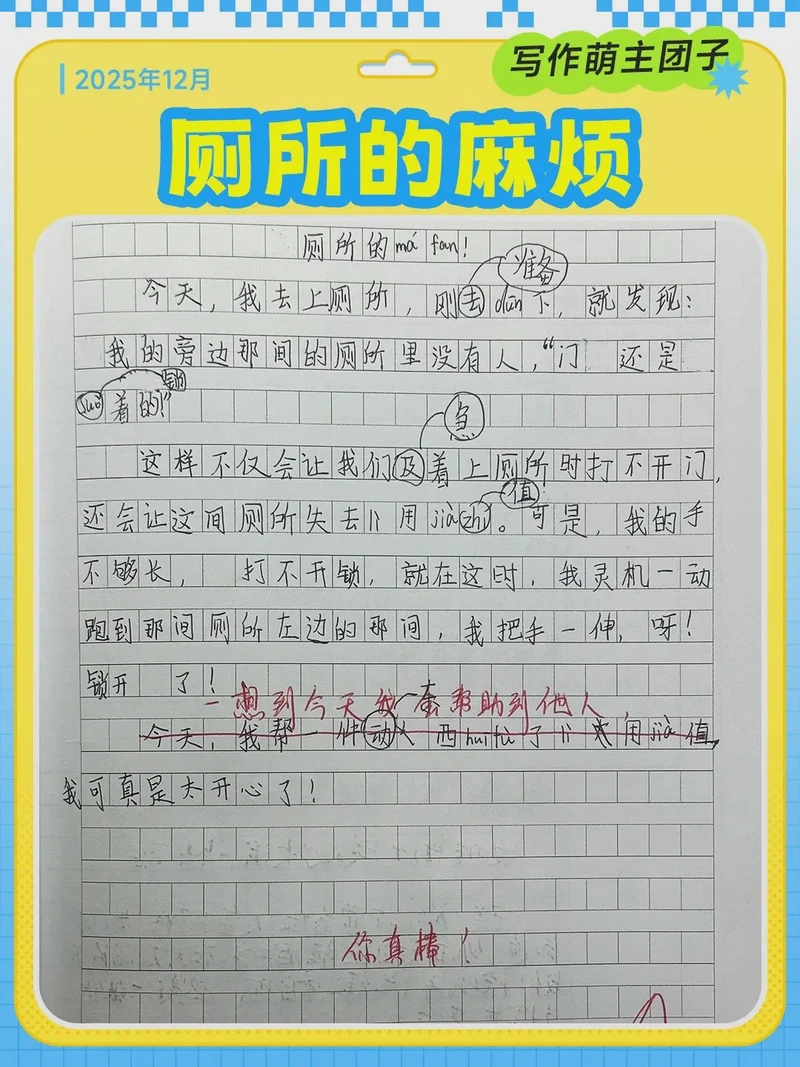 写作萌主团子
2025年12月
厕所的麻烦
厕所的má fan!
准备
今天,我去上厕所,刚去dūn下,就发现:
我的旁边那间的厕所里没有人,“门 还是
锁
suǒ着的!”
急
这样不仅会让我们及着上厕所时打不开门,
值
还会让这间厕所失去li用jiàzhí。可是,我的手
不够长, 打不开锁,就在这时,我灵机一动
跑到那间厕所左边的那间,我把手一伸,呀!
锁开 了!
一想到今天我帮助到他人,
今天,我帮一件动 西huīfù了li 用jià值,
我可真是太开心了!
你真棒!